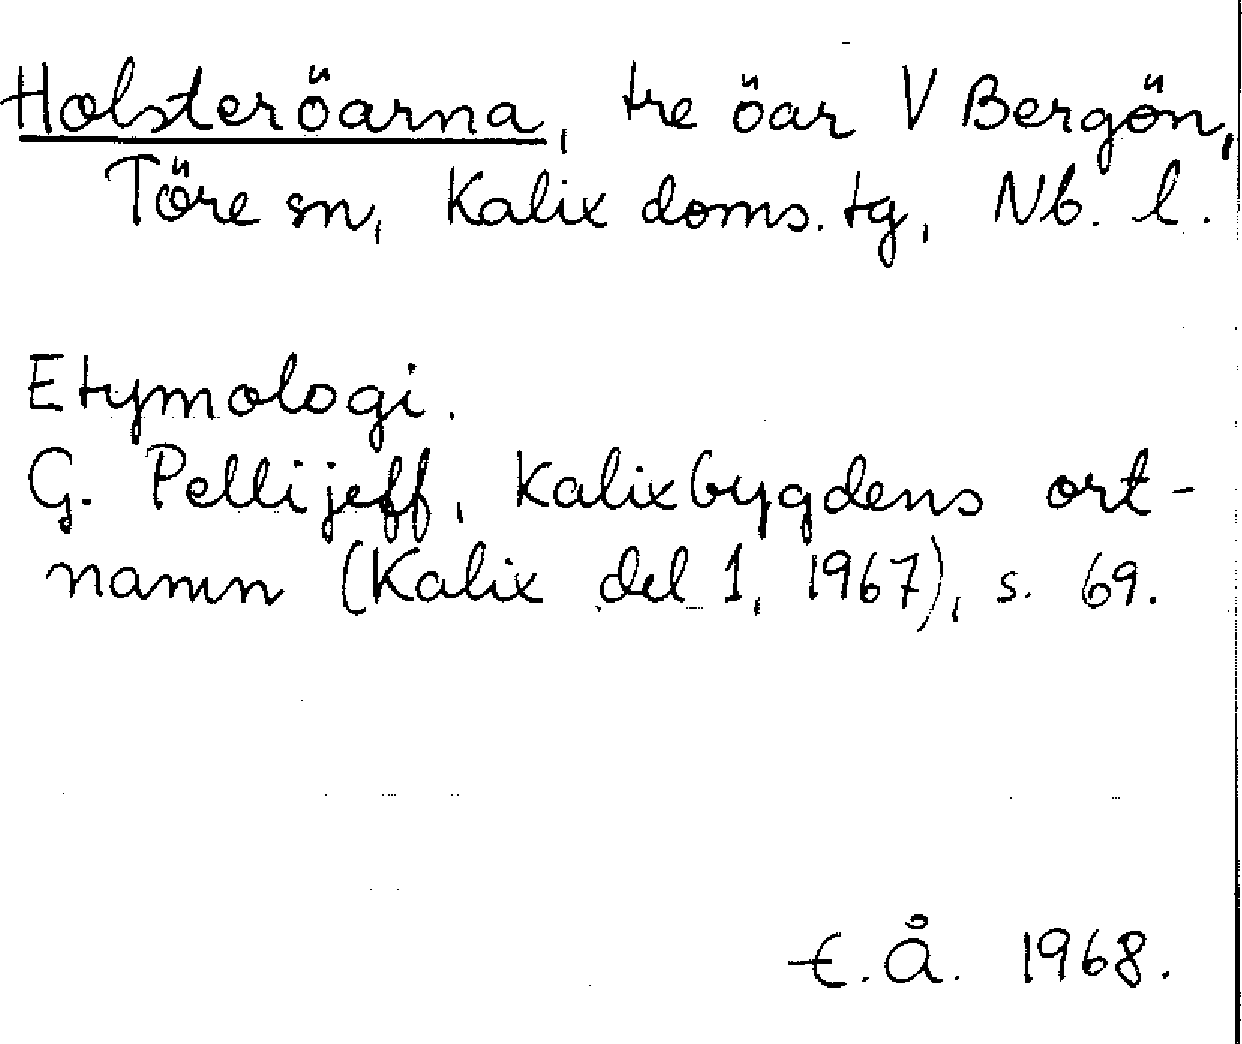 Holsteröarna, tre öar V Bergön,
Töre sn, Kalix doms.tg, Nb. l.
Etymologi.
G. Pellijeff, Kalixbygdens ort-
namn (Kalix del 1, 1967), s. 69.
E.Å. 1968.